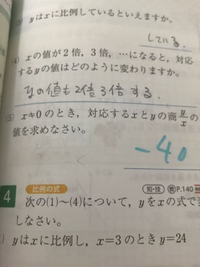 yはxに比例しているといえますか。
している。
xの値が2倍、3倍、…になると、対応
するyの値はどのように変わりますか。
yの値も2倍3倍する。
x≠0のとき、対応するxとyの商y/xの
値を求めなさい。
-40
4 比例の式
知・技 教P.140
次の(1)~(4)について、yをxの式で
しなさい。
yはxに比例し、x=3のときy=24